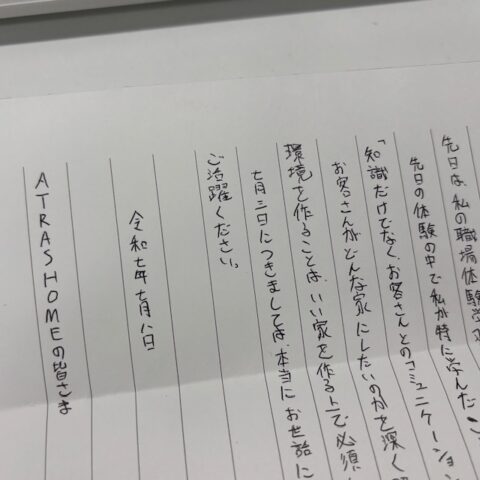 先日は、私の職場体験学
先日の体験の中で私が特に学んだこ
「知識だけでなく、お客さんとのコミュニケーション
お客さんがどんな家にしたいのかを深く
環境を作ることは、いい家を作る上で必須
七月三日につきましては、本当にお世話に
ご活躍ください。
令和七年七月八日
ATRASHOMEの皆さま